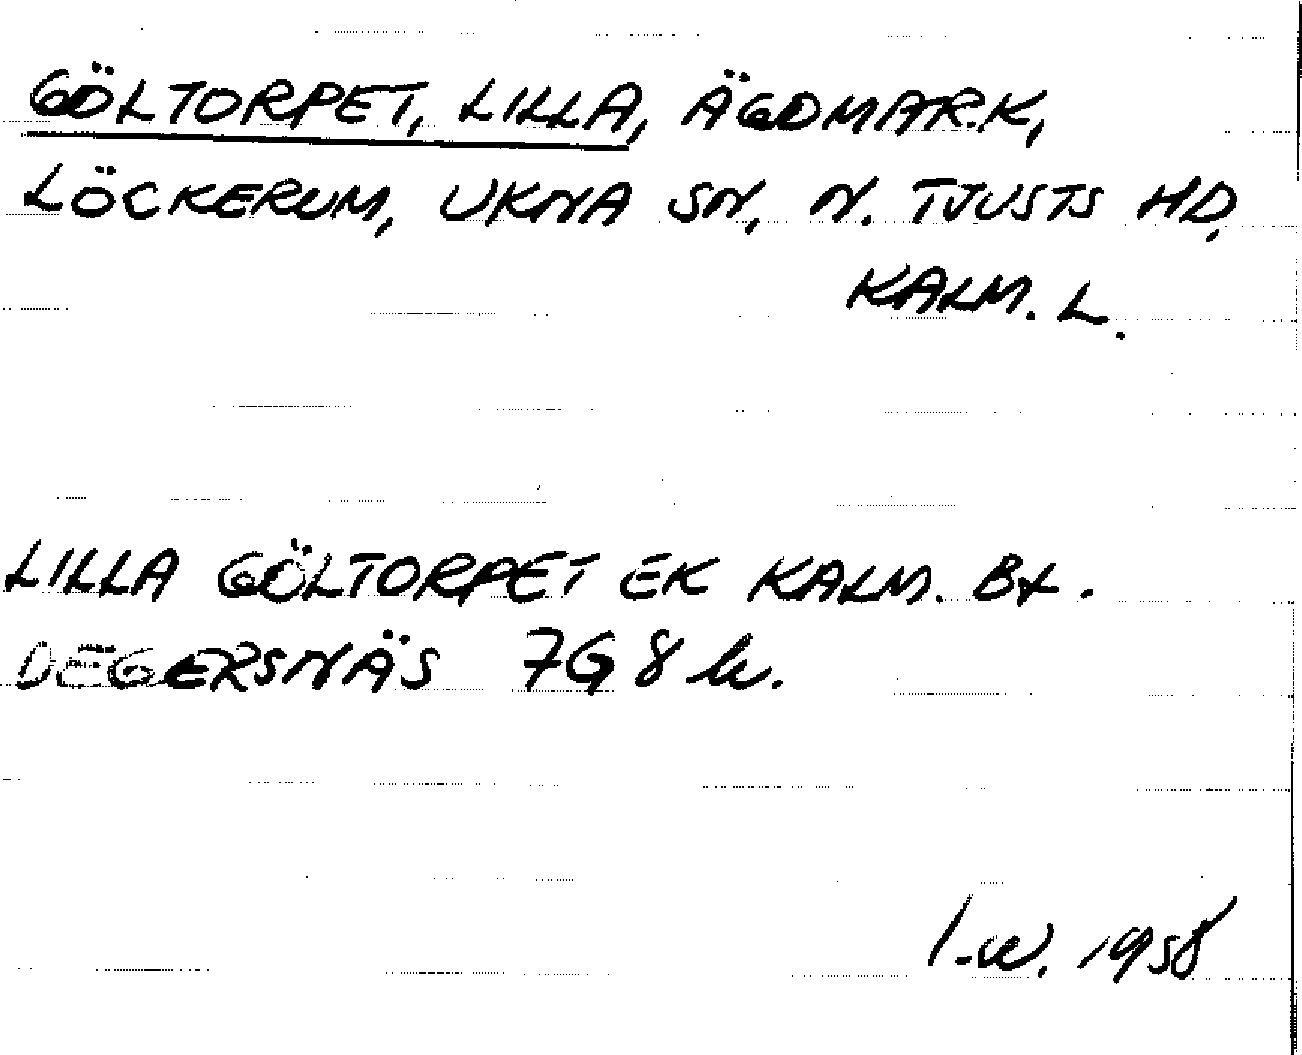 GÖLTORPET, LILLA, ÄGOMARK,
LÖCKERUM, UKNA SN, N. TJUSTS HD,
KALM. L.
LILLA GÖLTORPET EK KALM. BL.
DEGERSNÄS 7G8h.
I-W. 1958